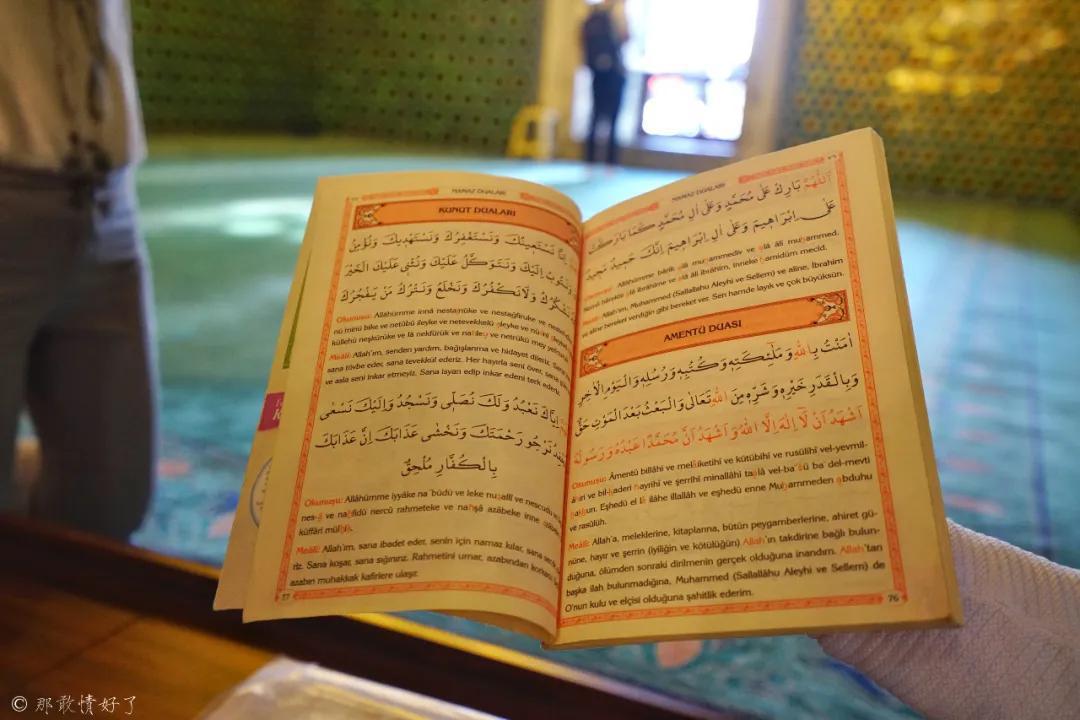 NAMAZ DUALARI
اَللّٰهُمَّ بَارِكْ عَلٰى مُحَمَّدٍ وَعَلٰى اٰلِ مُحَمَّدٍ كَمَا بَارَكْتَ
عَلٰى اِبْرَاهِيمَ وَعَلٰى اٰلِ اِبْرَاهِيمَ اِنَّكَ حَمِيدٌ مَجِيدٌ
Okunuşu: Allâhümme bârik alâ muhammediv ve alâ âli muhammed.
kemâ bârekte alâ ibrâhîme ve alâ âli ibrâhîm, inneke hamîdüm mecîd.
Meâli: Allah'ım, Muhammed (Sallallahu Aleyhi ve Sellem) ve aline, İbrahim
ve aline bereket verdiğin gibi bereket ver. Sen hamde layık ve çok büyüksün.
AMENTÜ DUASI
اٰمَنْتُ بِاللّٰهِ وَمَلٰئِكَتِهِ وَكُتُبِهِ وَرُسُلِهِ وَالْيَوْمِ الْاٰخِرِ
وَبِالْقَدَرِ خَيْرِهِ وَشَرِّهِ مِنَ اللّٰهِ تَعَالٰى وَالْبَعْثُ بَعْدَ الْمَوْتِ حَقٌّ
اَشْهَدُ اَنْ لَٓا اِلٰهَ اِلَّا اللّٰهُ وَاَشْهَدُ اَنَّ مُحَمَّدًا عَبْدُهُ وَرَسُولُهُ
Okunuşu: Âmentü billâhi ve melâiketihî ve kütübihî ve rusülihî vel-yevmil-
âhıri ve bil-kaderi hayrihî ve şerrihî minallâhi taâlâ vel-ba´sü ba´del-mevti
hakkun. Eşhedü el lâ ilâhe illallâh ve eşhedü enne Muhammeden abduhu
ve rasûlüh.
Meâli: Allah'a, meleklerine, kitaplarına, bütün peygamberlerine, ahiret gü-
nüne, hayır ve şerrin (iyiliğin ve kötülüğün) Allah'ın takdirine bağlı bulun-
duğuna, ölümden sonraki dirilmenin gerçek olduğuna inandım. Allah'tan
başka ilah bulunmadığına, Muhammed (Sallallâhu Aleyhi ve Sellem) de
O'nun kulu ve elçisi olduğuna şahitlik ederim.
76
NAMAZ DUALARI
KUNUT DUALARI
اِنَّا نَسْتَعِينُكَ وَنَسْتَغْفِرُكَ وَنَسْتَهْدِيكَ وَنُؤْمِنُ
وَنَتُوبُ اِلَيْكَ وَنَتَوَكَّلُ عَلَيْكَ وَنُثْنِى عَلَيْكَ الْخَيْرَ
نَشْكُرُكَ وَلَا نَكْفُرُكَ وَنَخْلَعُ وَنَتْرُكُ مَنْ يَفْجُرُكَ
Okunuşu: Allâhümme innâ nestaînüke ve nestağfiruke ve
nü minü bike ve netûbü ileyke ve netevekkelü aleyke ve nüsnî
küllehü neşkürüke ve lâ nekfürük ve nahleu ve netrükü mey
Meâli: Allah'ım, senden yardım, bağışlanma ve hidayet dileriz.
sana tövbe eder, sana tevekkül ederiz. Her hayırla seni över, sana
ve asla seni inkar etmeyiz. Sana isyan edip inkar edeni terk ederiz.
اِيَّاكَ نَعْبُدُ وَلَكَ نُصَلِّى وَنَسْجُدُ وَاِلَيْكَ نَسْعٰى
نَرْجُو رَحْمَتَكَ وَنَخْشٰى عَذَابَكَ اِنَّ عَذَابَكَ
بِالْكُفَّارِ مُلْحِقٌ
Okunuşu: Allâhümme iyyâke na´büdü ve leke nusallî ve nescudü
nes-â ve nahfidü nercü rahmeteke ve nahşâ azâbeke inne
küffâri mülhık.
Meâli: Allah'ım, sana ibadet eder, senin için namaz kılar, sana
riz. Sana koşar, sana sığınırız. Rahmetini umar, azabından korkarız.
azabın muhakkak kafirlere ulaşır.
77
© 那敢情好了